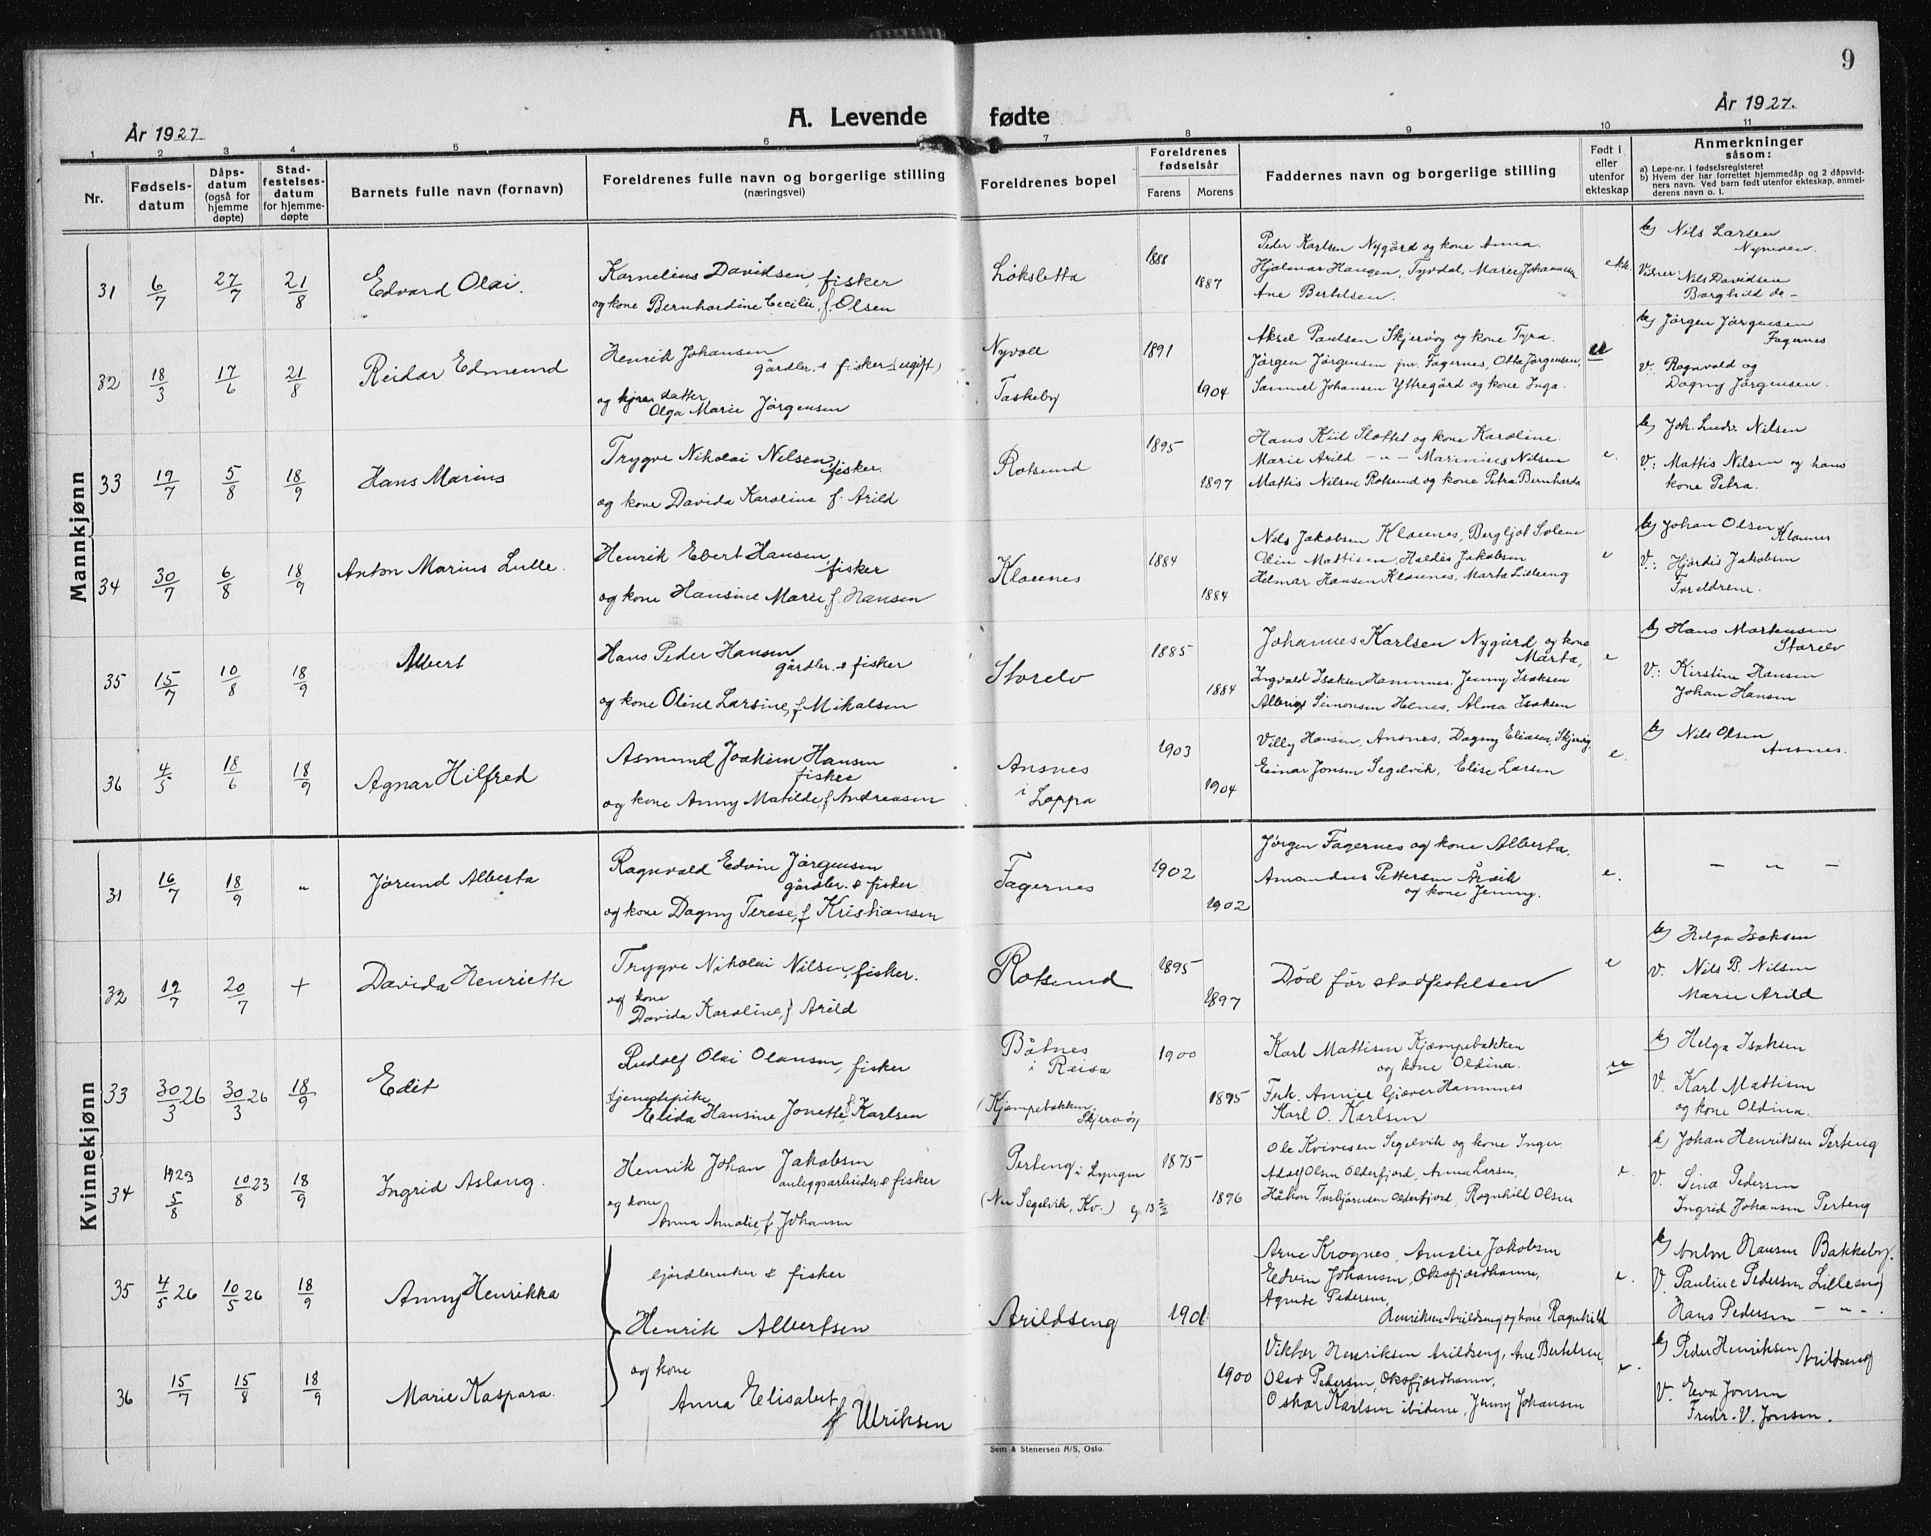 9
År 1927.
A. Levende fødte
År 1927.
1 2 3 4 5 6 7 8 9 10 11
Nr.
Fødsels-
datum
Dåps-
datum
(også for
hjemme
døpte)
Stad-
festelses-
datum
for hjemme-
døpte
Barnets fulle navn (fornavn)
Foreldrenes fulle navn og borgerlige stilling
(næringsvei)
Foreldrenes bopel
Foreldrenes
fødselsår
Farens Morens
Faddernes navn og borgerlige stilling
Født i
eller
utenfor
ekteskap
Anmerkninger
såsom:
a) Løpe-nr. i fødselsregisteret
b) Hvem der har forrettet hjemmedåp og 2 dåpsvid-
ners navn. Ved barn født utenfor ekteskap, anmel-
derens navn o. l.
Mannkjønn
31 6/7 27/7 21/8 Edvard Olai.
Kornelius Davidsen, fisker
og kone Bernhardine Cecilie, f. Olsen
Løksletta 1888 1887
Peder Karlsen Nygård og kone Anna.
Hjalmar Hansen, Tyvdal, Marie Johannsen
Ane Bertelsen.
ekt.
b) Nils Larsen
Vidner: Nils Davidsen
Borghild do -
32 18/3 17/6 21/8 Reidar Edmund
Henrik Johansen
gårdbr. & fisker (ugift)
og hjem. datter
Olga Marie Jørgensen
Nyvoll
Taskeby
1891 1904
Aksel Paulsen Skjervøy og kone Tyra.
Jørgen Jørgensen jnr. Fagernes, Otto Jørgensen,
Samuel Johansen Yttregård og kone Inga.
ue
b) Jørgen Jørgensen
Fagernes
V: Ragnvald og
Dagny Jørgensen.
33 19/7 5/8 18/9 Hans Marius
Trygve Nikolai Nilsen,
fisker.
og kone Davida Karoline f. Arild
Rotsund 1895 1897
Hans Kiil Slottet og kone Karoline.
Marie Arild - " - Marinius Nilsen
Mattis Nilsen Rotsund og kone Petra Bernharda
e.
b) Joh. Ludv. Nilsen
V: Mattis Nilsen og hans
kone Petra.
34 30/7 6/8 18/9 Anton Marius Lulle.
Henrik Ebert Hansen,
fisker
og kone Hansine Marie, f. Hansen
Klauenes 1884 1884
Nils Jakobsen Klauenes, Bergljot Solene
Odin Mattisen, Haldis Jakobsen
Helmar Hansen Klauenes, Marta Lilleeng
e
b) Johan Olsen
Klauenes
V: Hjørdis Jakobsen
Foreldrene.
35 15/7 10/8 18/9 Albert
Hans Peder Hansen
gårdbr. & fisker
og kone Oline Larsine, f. Mikalsen
Storelv 1885 1884
Johannes Karlsen Nygård og kone
Marta,
Ingvald Isaksen Hamnnes, Jenny Isaksen
Albrigt Simonsen Helnes, Alma Isaksen
e
b) Hans Mortensen
Storelv
V: Kirstine Hansen
Johan Hansen
36 4/5 18/6 18/9 Agnar Hilfred
Asmund Joakim Hansen
fisker
og kone Anny Matilde, f. Andreasen
Ansnes
i Loppa
1903 1904
Villy Hansen, Ansnes, Dagny Eliasen, Skjervøy,
Einar Jonsen Segelvik, Elise Larsen
e.
b) Nils Olsen
Ansnes.
Kvinnekjønn
31 16/7 18/9 " Jørund Alberta
Ragnvald Edvin Jørgensen
gårdbr. & fisker
og kone Dagny Terese, f. Kristiansen
Fagernes 1902 1902
Jørgen Fagernes og kone Alberta.
Amandus Pettersen Årvik
og kone Jenny.
e.
- " -
32 19/7 20/7 + Davida Henriette
Trygve Nikolai Nilsen, fisker.
og kone
Davida Karoline, f. Arild
Rotsund 1895 1897
Død før stadfestelsen
e
b) Helga Isaksen
V. Nils B. Nilsen
Marie Arild
33 30/3 26 30/3 26 18/9 Edit
Rudolf Olai Olausen, fisker
tjenestepike
Elida Hansine Jonette f. Karlsen
Båtnes
i Reisa
(Kjæmpebakken,
Skjervøy
1900 1895
Karl Mattisen Kjæmpebakken
og kone Oldina.
Frk. Annie Gjæver Hamnnes
Karl O. Karlsen
ue
b) Helga Isaksen
V. Karl Mattisen
og kone Oldina.
34 1923 5/8 10/8 23 18/9 Ingrid Aslaug.
Henrik Johan Jakobsen
anleggsarbeider & fisker
og kone
Anna Amalie, f. Johansen
Perteng i Lyngen
(Nu Segelvik, Kv.)
1875 1896
Ole Kvivesen Segelvik og kone Inger
Adolf Olsen Olderfjord, Anna Larsen,
Håkon Torbjørnsen Olderfjord, Ragnhild Olsen
e.
b) Johan Henriksen Perteng
V. Sina Pedersen
Ingrid Johansen Perteng
35 4/5 26 10/5 26 18/9 Anny Henrikka
Gjårdbruker & fisker
Henrik Albertsen
og kone
Anna Elisabet,
f. Ulriksen
Arildseng 1901 1900
Arne Krognes, Amalie Jakobsen
Edvin Johansen, Oksfjordhamn,
Agnete Pedersen,
Henriksen Arildseng og kone Ragnhild
e.
b) Anton Hansen Bakkeby.
V. Pauline Pedersen Lilleeng
Hans Pedersen - " -.
36 15/7 15/8 18/9 Marie Kaspara.
Viktor Henriksen Arildseng, Ane Bertelsen,
Olav Pedersen, Oksfjordhamn,
Oskar Karlsen ibidene, Jenny Johansen
e.
b) Peder Henriksen Arildseng
V. Eva Jonsen
Fredr. V. Jonsen.
Sem & Stenersen A/S, Oslo.